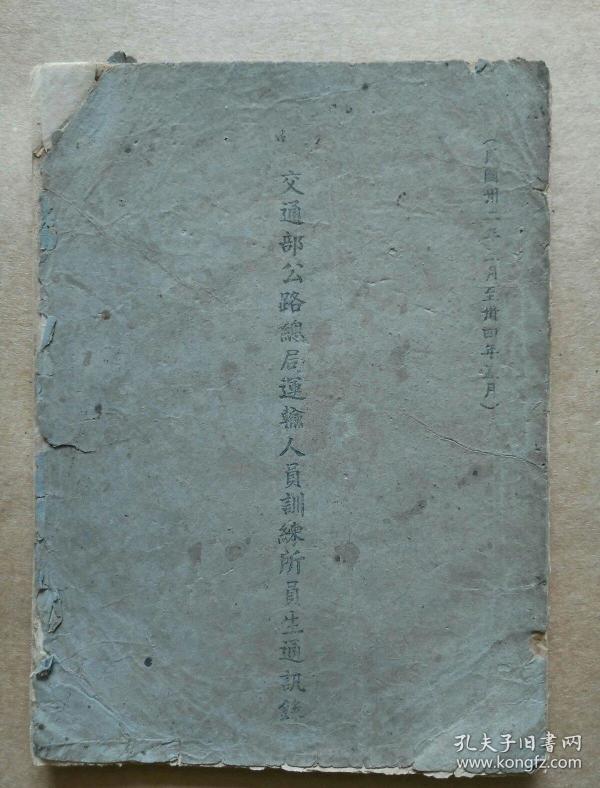 (民國卅二年一月至卅四年五月)
交通部公路總局運輸人員訓練所員生通訊錄
孔夫子旧书网
www.kongfz.com